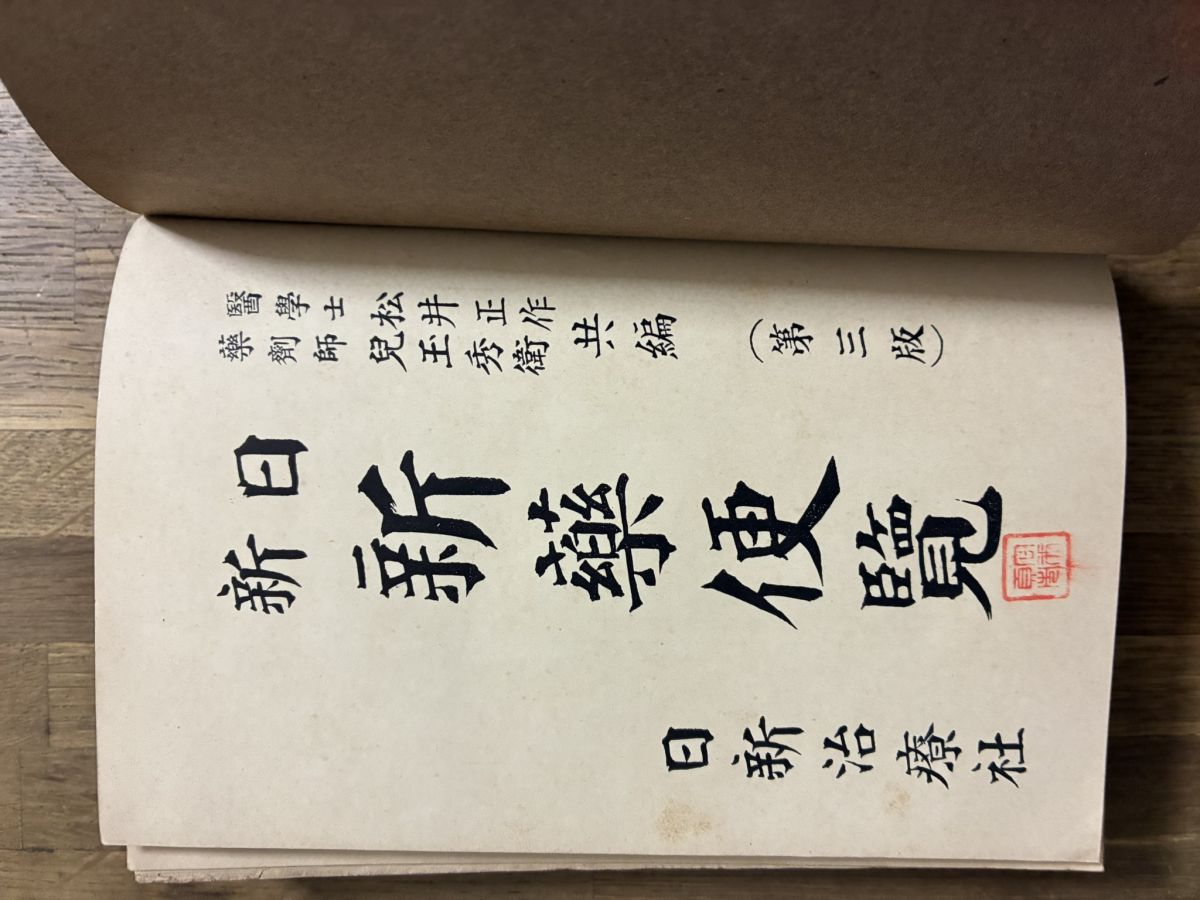 醫學士 松井正作
藥劑師 兒玉秀衛
共編
（第三版）
日新
新藥便覽
日新治療社